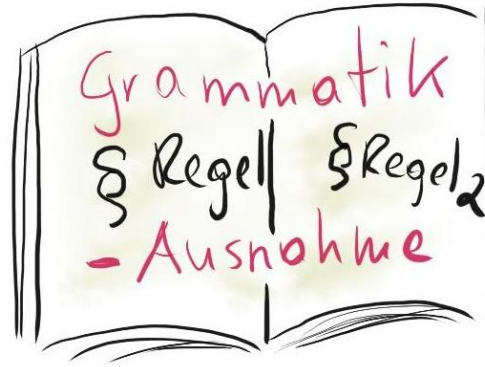 Grammatik
§ Regel1 § Regel2
- Ausnahme